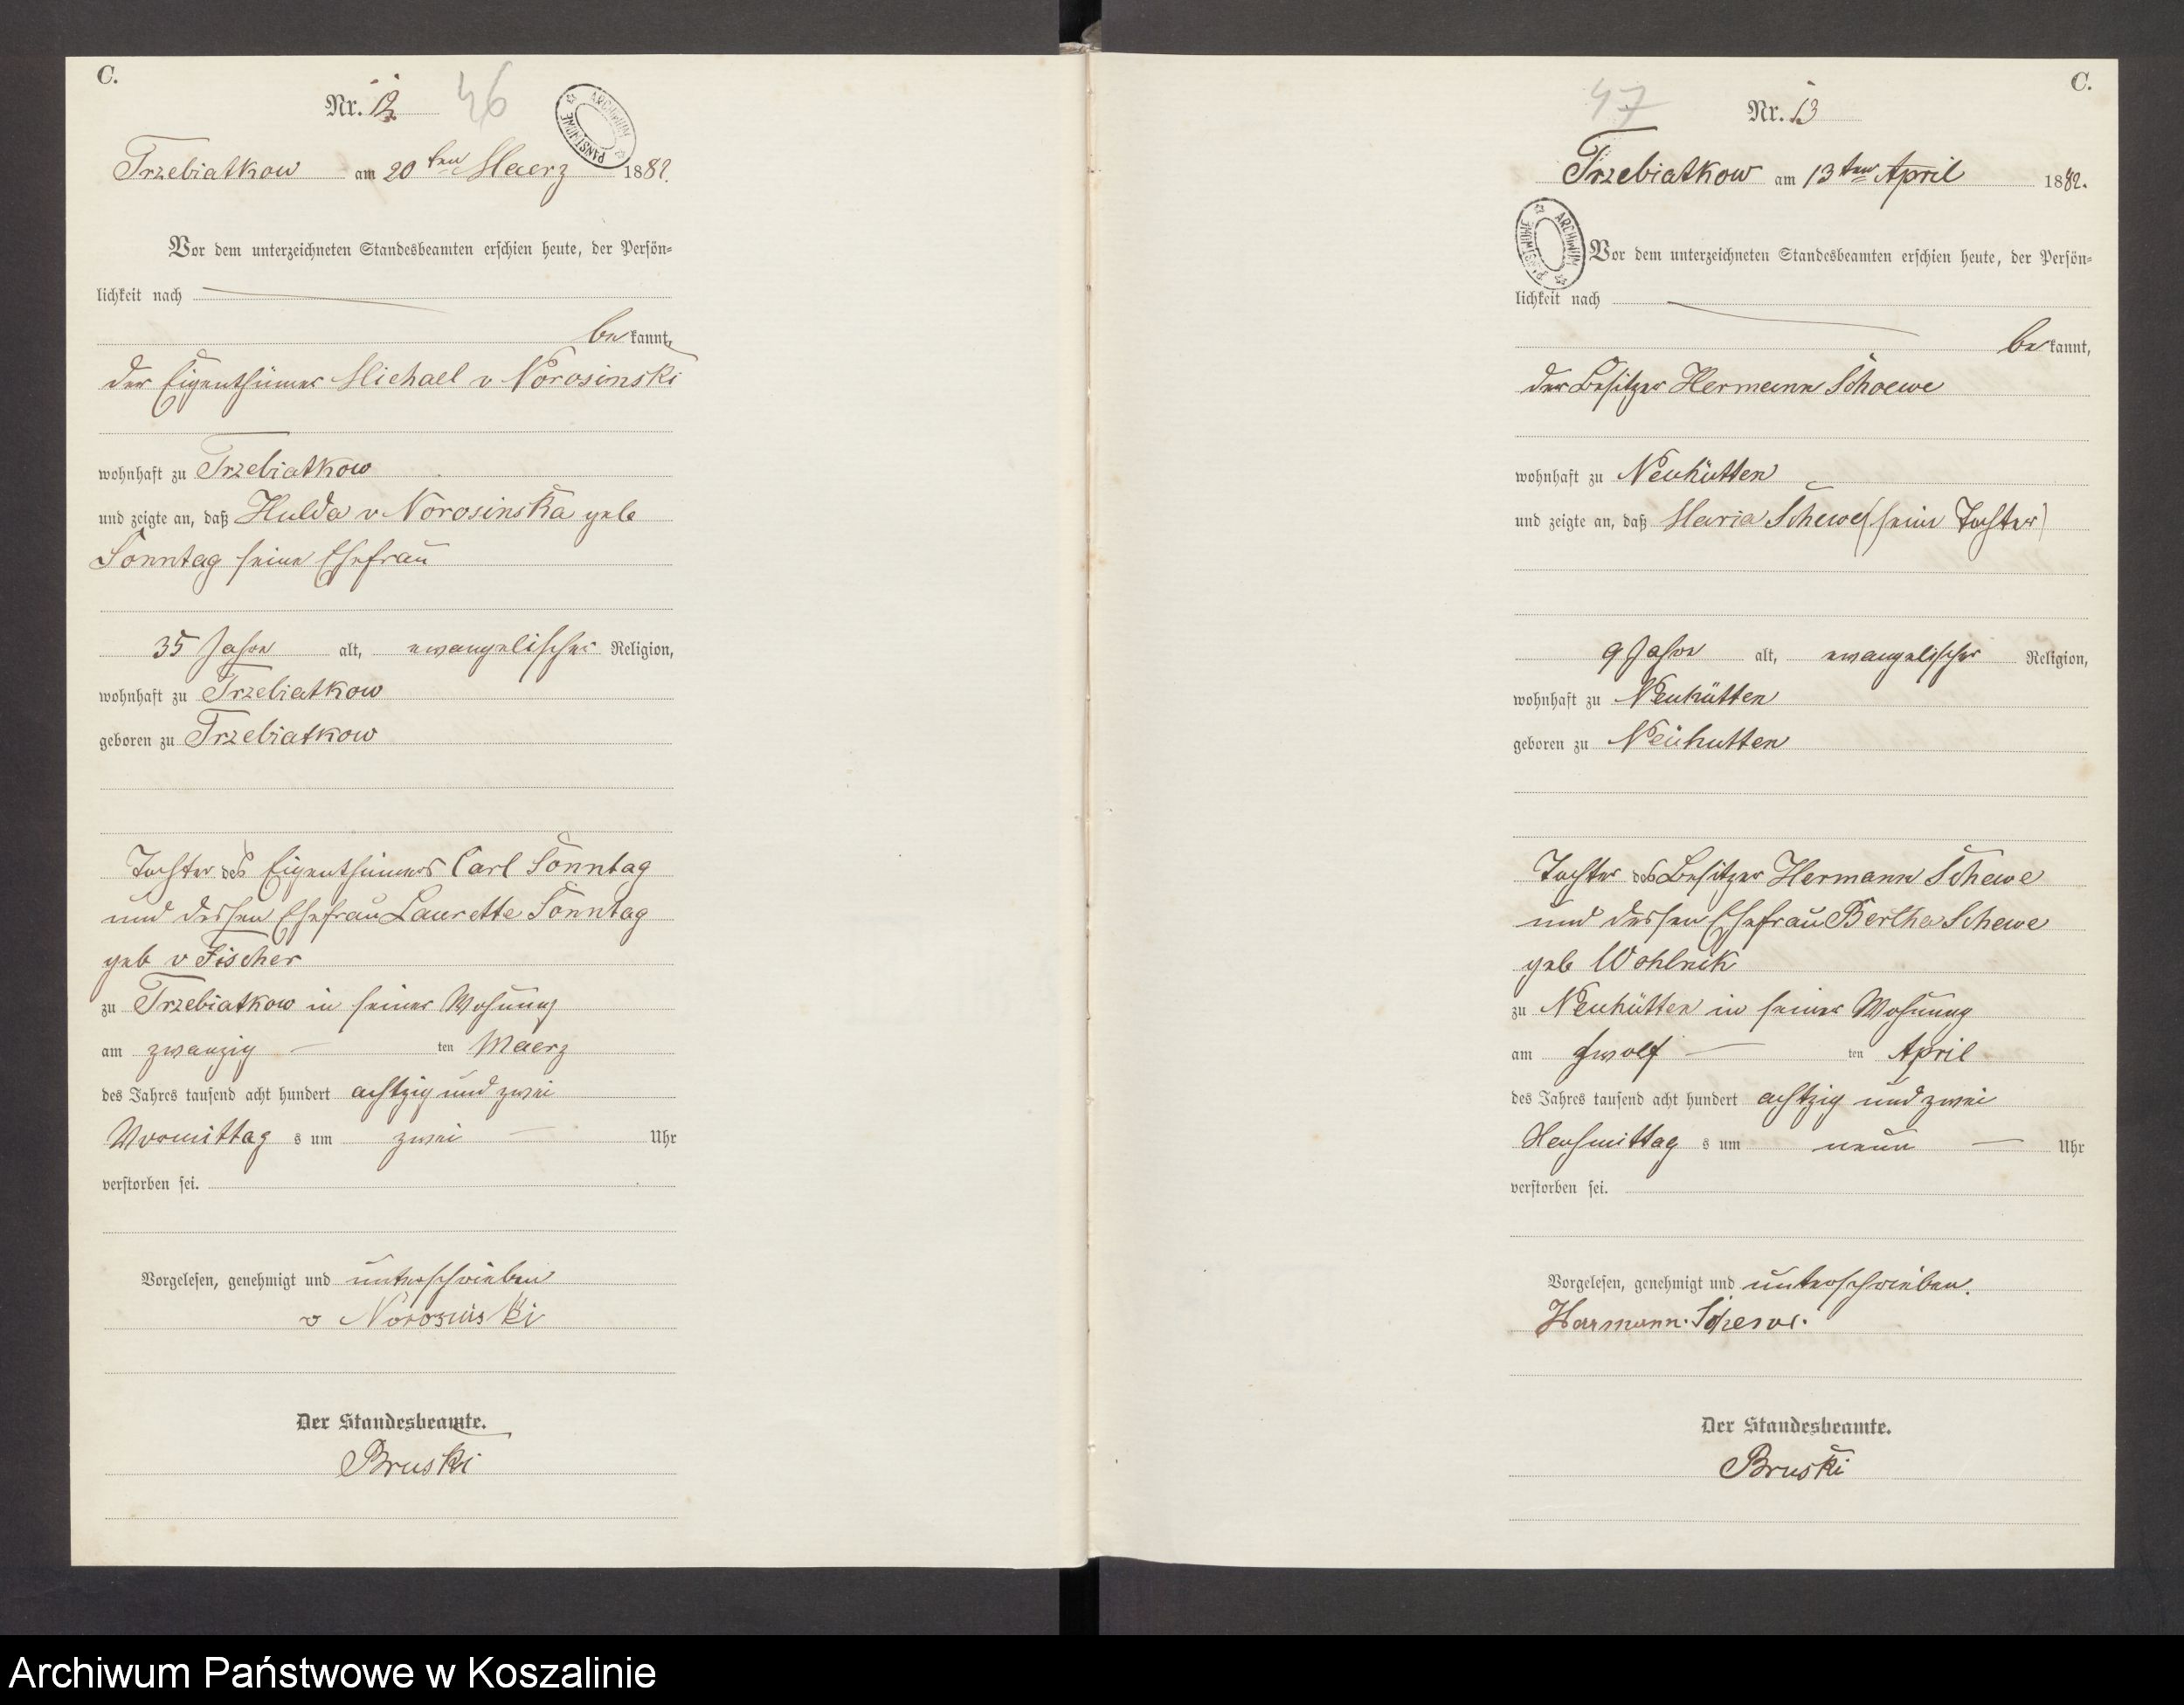 C.
Nr. 12.
46
ARCHIWUM PAŃSTWOWE
Trzebiatkow am 20 ten Maerz 1882.
Vor dem unterzeichneten Standesbeamten erschien heute, der Persön=
lichkeit nach
be kannt,
der Eigenthümer Michael v Norosinski
wohnhaft zu Trzebiatkow
und zeigte an, daß Hulda v Norosinska geb
Sonntag seine Ehefrau
35 Jahre alt, evangelischer Religion,
wohnhaft zu Trzebiatkow
geboren zu Trzebiatkow
Tochter des Eigenthümers Carl Sonntag
und dessen Ehefrau Laurette Sonntag
geb v Fischer
zu Trzebiatkow in seiner Wohnung
am zwanzig ten Maerz
des Jahres tausend acht hundert achtzig und zwei
Vormittag s um zwei Uhr
verstorben sei.
Vorgelesen, genehmigt und unterschrieben
v Norosinski
Der Standesbeamte.
Bruski
C.
47
Nr. 13
Trzebiatkow am 13 ten April 1882.
ARCHIWUM PAŃSTWOWE
Vor dem unterzeichneten Standesbeamten erschien heute, der Persön=
lichkeit nach
be kannt,
der Besitzer Hermann Schoewe
wohnhaft zu Neuhütten
und zeigte an, daß Maria Schewe (seine Tochter)
9 Jahre alt, evangelischer Religion,
wohnhaft zu Neuhütten
geboren zu Neuhutten
Tochter des Besitzer Hermann Schewe
und dessen Ehefrau Bertha Schewe
geb
zu Neuhütten in seiner Wohnung
am zwolf ten April
des Jahres tausend acht hundert achtzig und zwei
Nachmittag s um neun Uhr
verstorben sei.
Vorgelesen, genehmigt und unterschrieben.
Herrmann. Schewe.
Der Standesbeamte.
Bruski
Archiwum Państwowe w Koszalinie